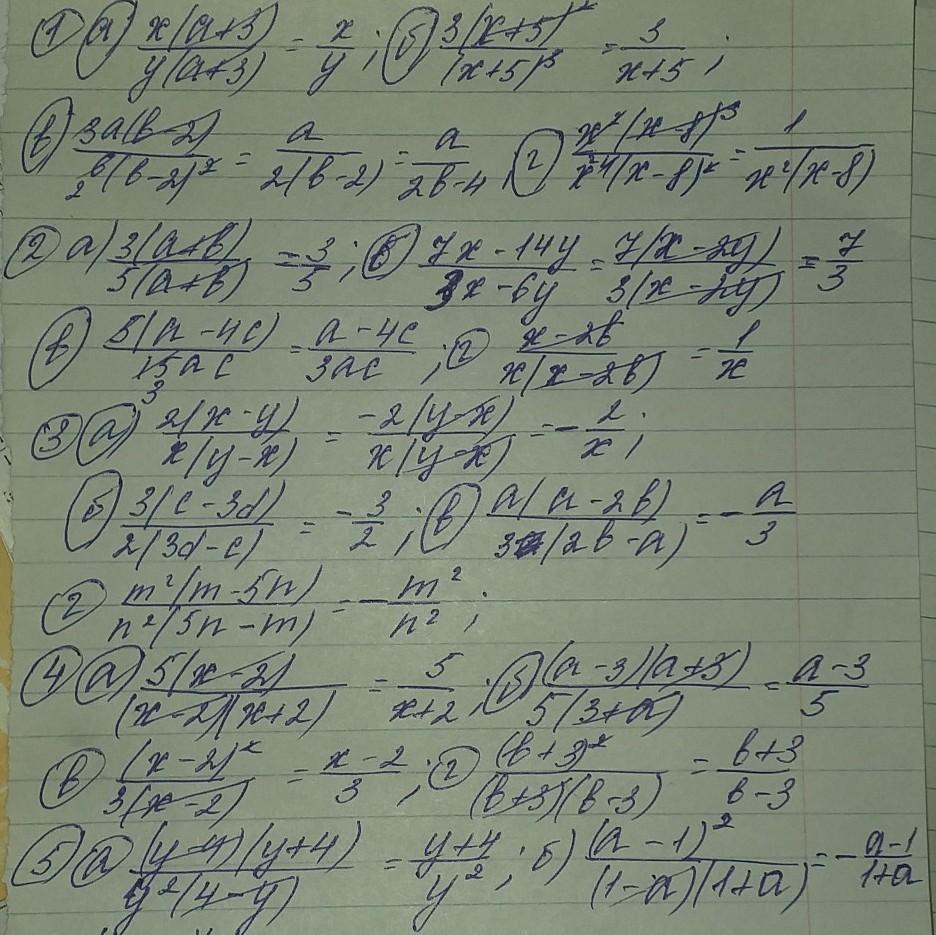 ① а) x(a+3)/y(a+3) = x/y; б) 3(x+5)²/(x+5)³ = 3/x+5;
в) 3a(b-2)/6(b-2)² = a/2(b-2) = a/2b-4, г) x²(x-8)/x⁴(x-8)² = 1/x²(x-8)
② а) 3(a+b)/5(a+b) = 3/5; б) 7x-14y/3x-6y = 7(x-2y)/3(x-2y) = 7/3
в) 5(a-4c)/15ac = a-4c/3ac; г) x-2b/x(x-2b) = 1/x
③ а) 2(x-y)/x(y-x) = -2(y-x)/x(y-x) = -2/x;
б) 3(c-3d)/2(3d-c) = -3/2; в) a(a-2b)/3(2b-a) = -a/3
г) m²(m-5n)/n²(5n-m) = -m²/n²;
④ а) 5(x-2)/(x-2)(x+2) = 5/x+2; б) (a-3)(a+3)/5(3+a) = a-3/5
в) (x-2)²/3(x-2) = x-2/3; г) (b+3)²/(b+3)(b-3) = b+3/b-3
⑤ а) (y-4)(y+4)/y²(4-y) = y+4/y²; б) (a-1)²/(1-a)(1+a) = -a-1/1+a